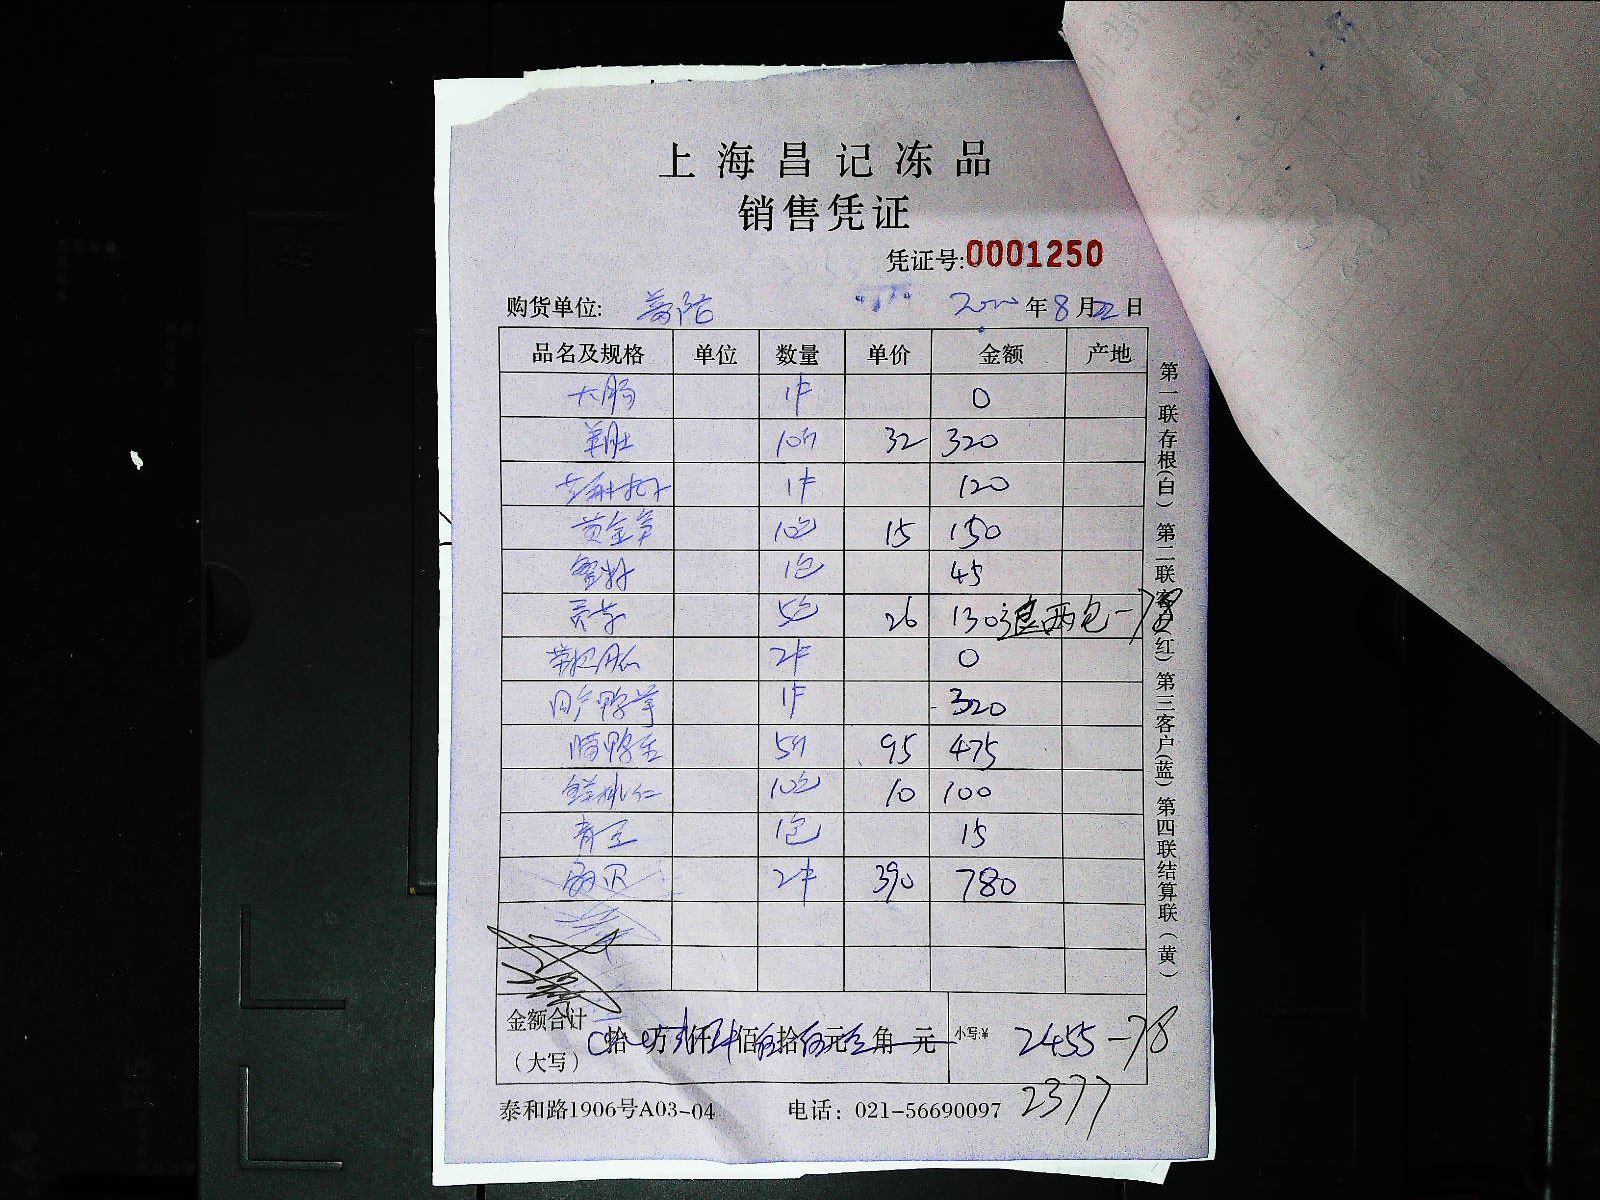 上海昌记冻品
销售凭证
凭证号:0001250
购货单位: 年8月22日
品名及规格 单位 数量 单价 金额 产地
大肠 1件 0
羊肚 10斤 32 320
1件 120
黄金笋 10包 15 150
1包 45
5包 26 130退两包-78
2件 0
1件 320
5只 95 475
鲜桃仁 10包 10 100
青豆 1包 15
2件 390 780
金额合计
(大写) 拾 万 仟 佰 拾 元 角 元 小写:¥ 2455-78
2377
泰和路1906号A03-04 电话: 021-56690097
第一联存根(白) 第二联客户(红) 第三客户(蓝) 第四联结算联(黄)